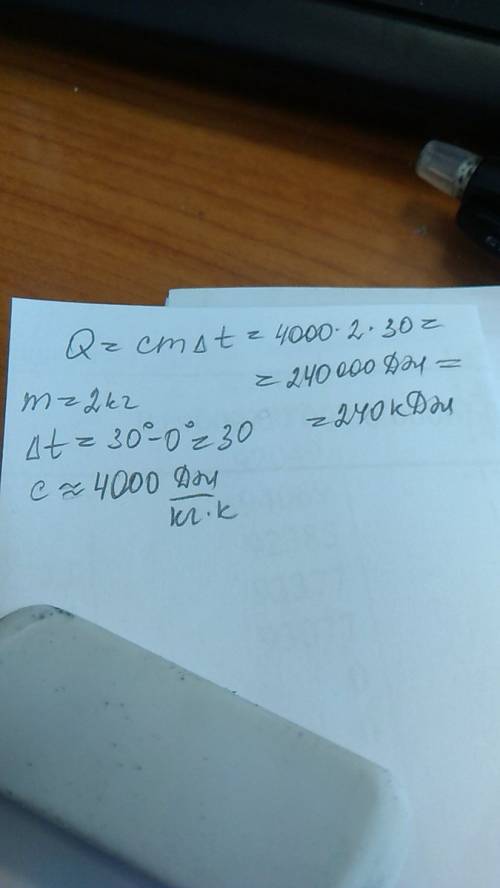 Q = cm Δt = 4000·2·30 =
= 240000 Дж =
= 240 кДж
m = 2 кг
Δt = 30° - 0° = 30
c ≈ 4000 Дж
кг·К